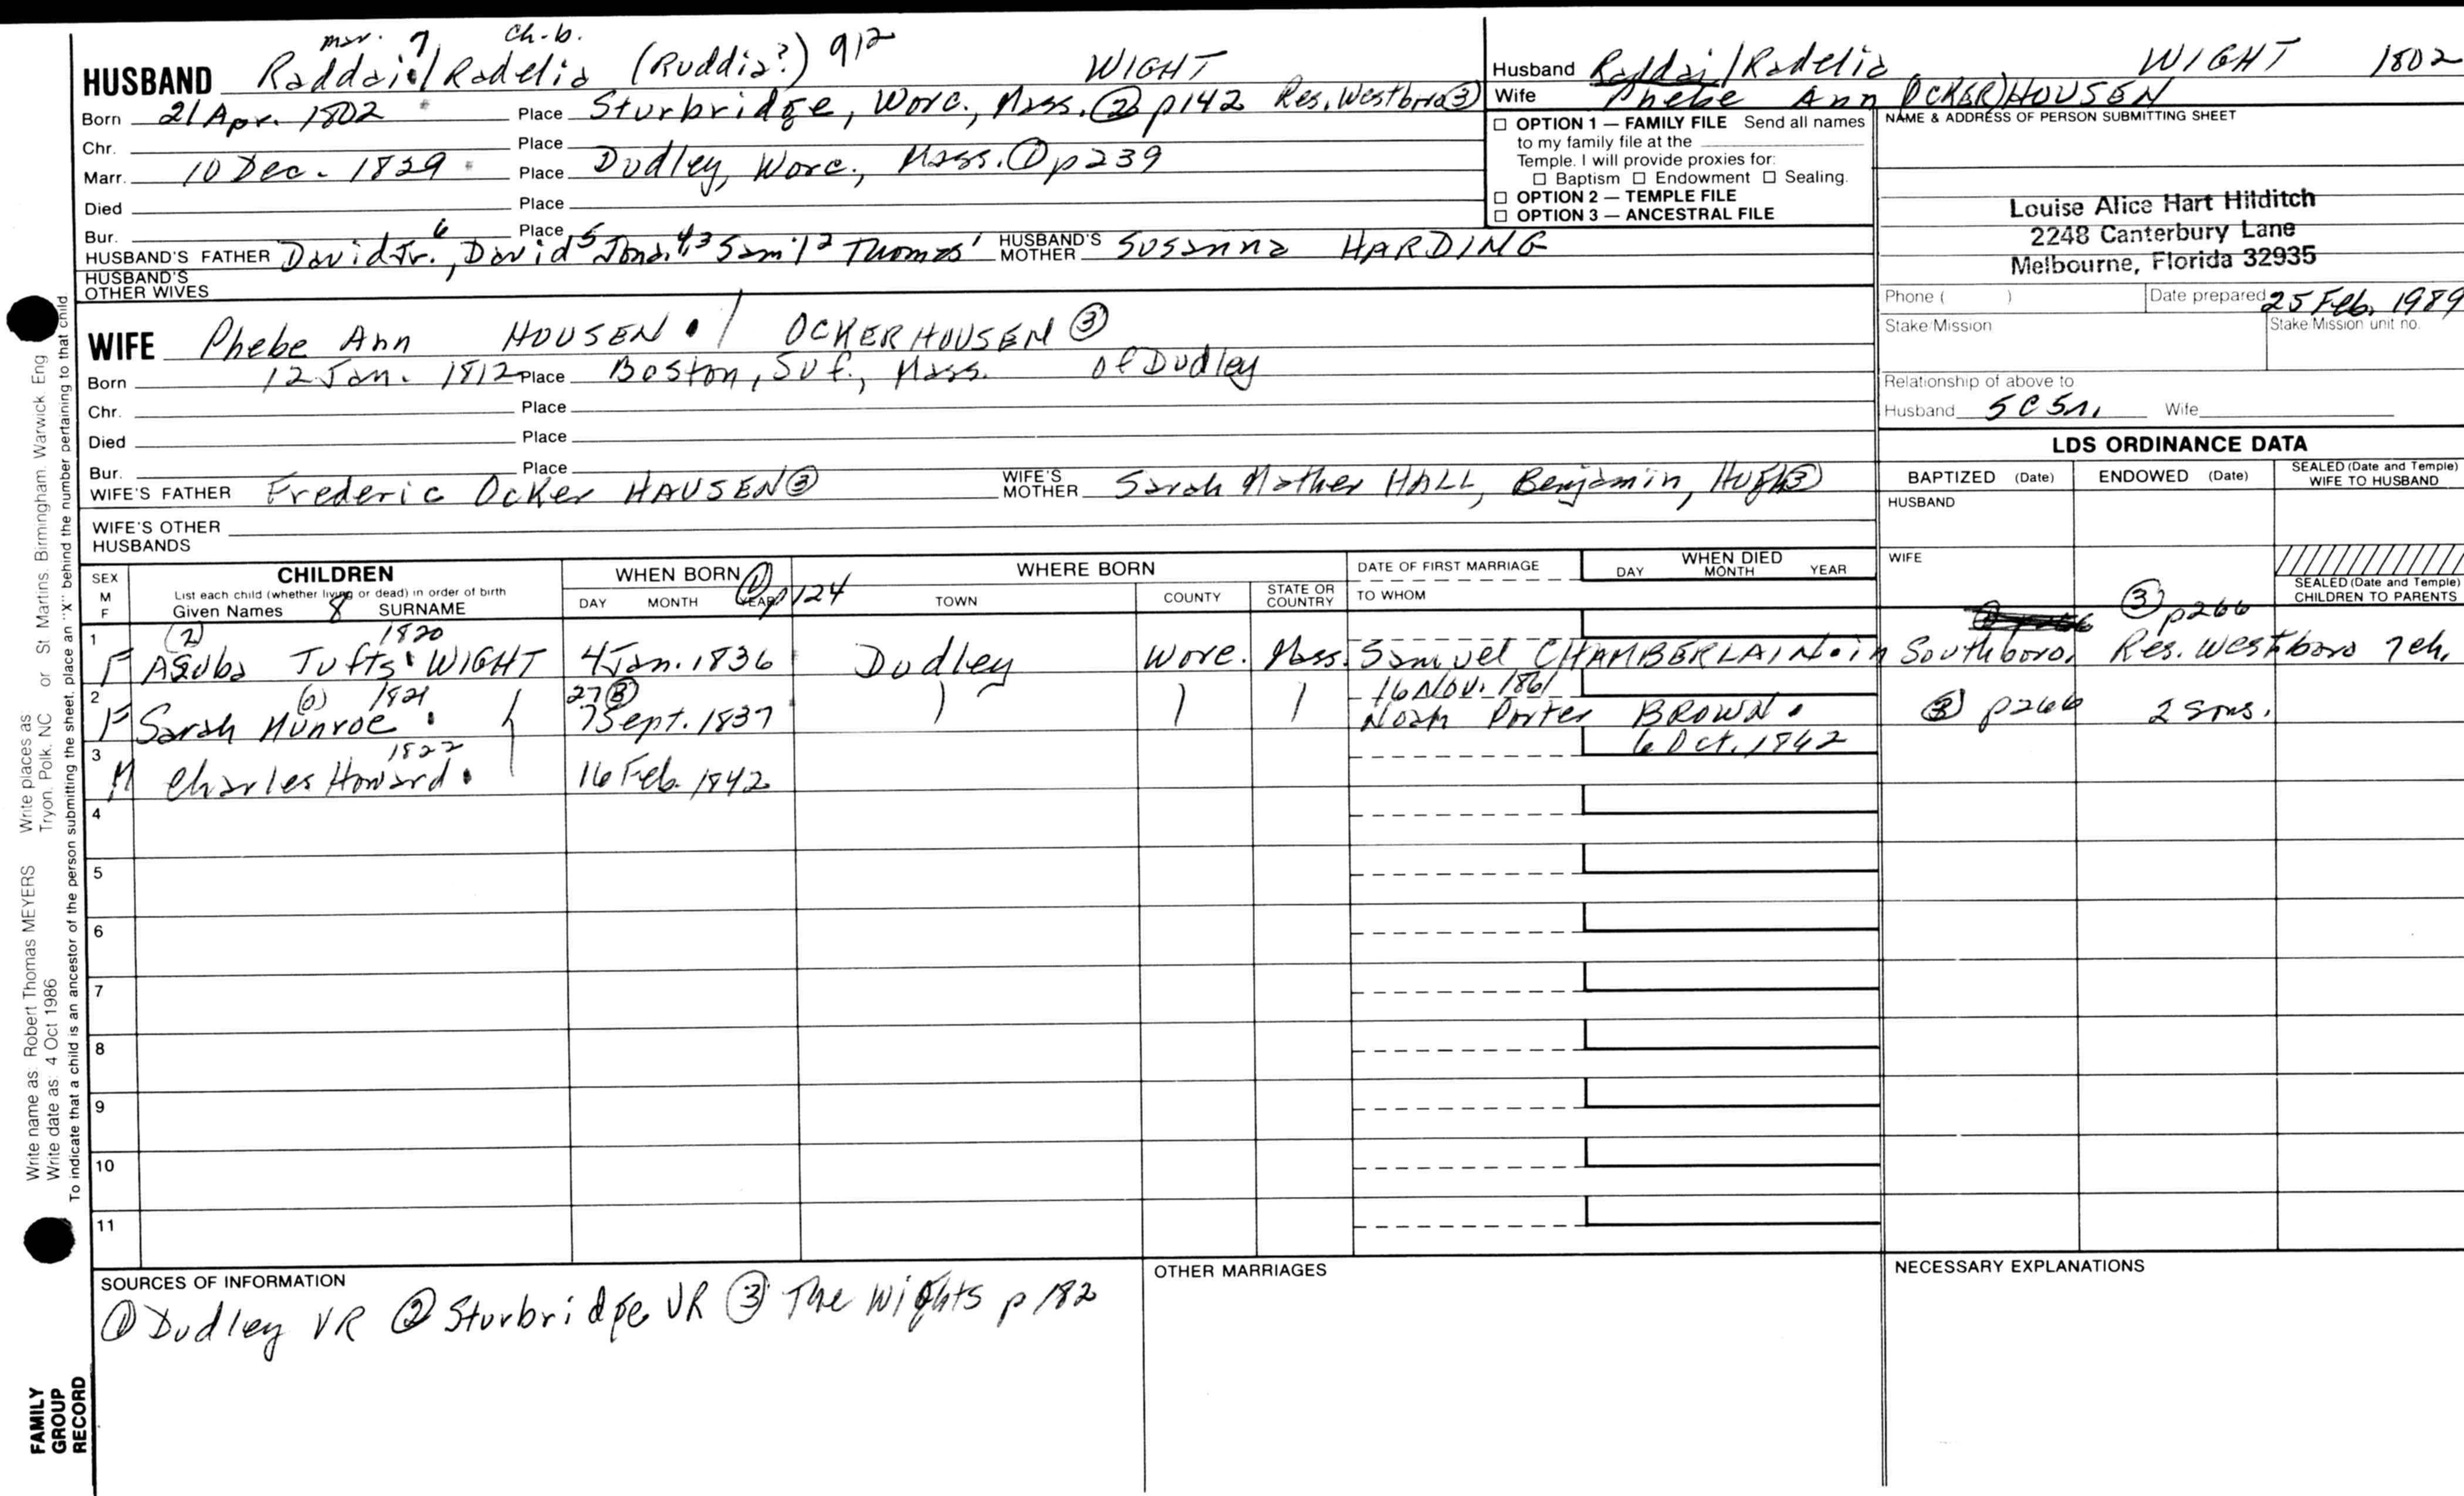 mar. 7 ch-b.
HUSBAND Raddai/Radelia (Ruddia?) 912 WIGHT
Born 21 Apr. 1802 Place Sturbridge, Worc., Mass. ② p142 Res. Westboro ③
Chr. Place
Marr. 10 Dec. 1829 Place Dudley, Worc., Mass. ① p239
Died Place
Bur. Place
HUSBAND'S FATHER David Jr.6, David5 Jona.43 Sam'l2 Thomas1 HUSBAND'S MOTHER Susanna HARDING
HUSBAND'S OTHER WIVES
WIFE Phebe Ann HOUSEN / OCKERHOUSEN ③
Born 12 Jan. 1812 Place Boston, Suf., Mass. of Dudley
Chr. Place
Died Place
Bur. Place
WIFE'S FATHER Frederic Ocker HAUSEN ③ WIFE'S MOTHER Sarah Mather HALL, Benjamin, Hugh ③
WIFE'S OTHER HUSBANDS
Husband Raddai/Radelia WIGHT 1802
Wife Phebe Ann OCKER)HOUSEN
☐ OPTION 1 — FAMILY FILE Send all names
to my family file at the
Temple. I will provide proxies for:
☐ Baptism ☐ Endowment ☐ Sealing.
☐ OPTION 2 — TEMPLE FILE
☐ OPTION 3 — ANCESTRAL FILE
NAME & ADDRESS OF PERSON SUBMITTING SHEET
Louise Alice Hart Hilditch
2248 Canterbury Lane
Melbourne, Florida 32935
Phone ( ) Date prepared 25 Feb. 1989
Stake/Mission Stake/Mission unit no.
Relationship of above to
Husband 5C5n. Wife
LDS ORDINANCE DATA
BAPTIZED (Date) ENDOWED (Date) SEALED (Date and Temple) WIFE TO HUSBAND
HUSBAND
WIFE
SEALED (Date and Temple) CHILDREN TO PARENTS
SEX M F
CHILDREN
List each child (whether living or dead) in order of birth
Given Names 8 SURNAME
WHEN BORN ① p124
DAY MONTH YEAR
WHERE BORN
TOWN COUNTY STATE OR COUNTRY
DATE OF FIRST MARRIAGE
TO WHOM
WHEN DIED
DAY MONTH YEAR
③ p266
(2) 1820
1 F Asuba Tufts WIGHT 4 Jan. 1836 Dudley Worc. Mass. Samuel CHAMBERLAIN in Southboro. Res. Westboro 7 ch.
(6) 1821 27 ③ 16 Nov. 1861
2 F Sarah Munroe 7 Sept. 1837 Noah Porter BROWN ③ p266 2 sons.
1822 6 Oct. 1842
3 M Charles Howard 16 Feb. 1842
4
5
6
7
8
9
10
11
SOURCES OF INFORMATION
① Dudley VR ② Sturbridge VR ③ The Wights p 182
OTHER MARRIAGES
NECESSARY EXPLANATIONS
Write name as: Robert Thomas MEYERS Write places as: Tryon, Polk, NC or St Martins, Birmingham, Warwick, Eng
Write date as: 4 Oct 1986
To indicate that a child is an ancestor of the person submitting the sheet, place an "X" behind the number pertaining to that child.
FAMILY
GROUP
RECORD